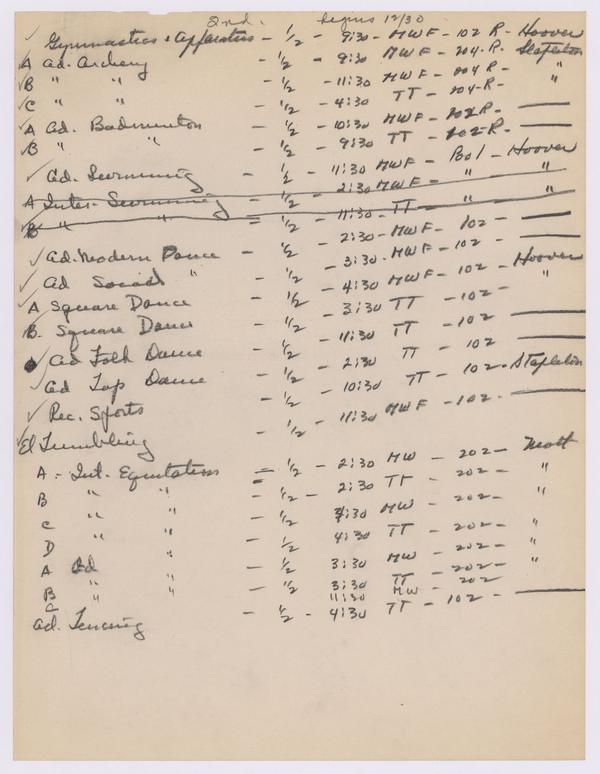 2nd. begins 12/30
✓ Gymnastics & Apparatus - 1/2 - 9:30 - MWF - 102 R - Hoover
A Ad. Archery - 1/2 - 9:30 MWF - 204-R - Stapleton
B " " - 1/2 - 11:30 MWF - 204 R - "
C " " - 1/2 - 4:30 TT - 204-R - "
A Ad. Badminton - 1/2 - 10:30 MWF - 202 R - ——
B " " - 1/2 - 9:30 TT - 202-R - ——
✓ Ad. Swimming - 1/2 - 11:30 MWF - Pool - Hoover
A Inter. Swimming - 1/2 - 2:30 MWF - " "
B " " - 1/2 - 11:30 - TT - " "
✓ Ad. Modern Dance - 1/2 - 2:30 - MWF - 102 - ——
✓ Ad Social " - 1/2 - 3:30 - MWF - 102 - ——
A Square Dance - 1/2 - 4:30 MWF - 102 - Hoover
B. Square Dance - 1/2 - 3:30 TT - 102 - "
Ad Folk Dance - 1/2 - 11:30 TT - 102 - ——
✓ Ad Tap Dance - 1/2 - 2:30 TT - 102 ——
✓ Rec. Sports - 1/2 - 10:30 TT - 102 - Stapleton
✓ El Tumbling - 1/2 - 11:30 MWF - 102 - ——
A - Int. Equitation - 1/2 - 2:30 MW - 202 - Mott
B " " - 1/2 - 2:30 TT - 202 - "
C " " - 1/2 - 4:30 MW - 202 - "
D " " - 1/2 - 4:30 TT - 202 - "
A Ad " - 1/2 - 3:30 MW - 202 - "
B " " - 1/2 - 3:30 TT - 202 - "
C " 11:30 MW - 202
Ad. Fencing - 1/2 - 4:30 TT - 102 - ——